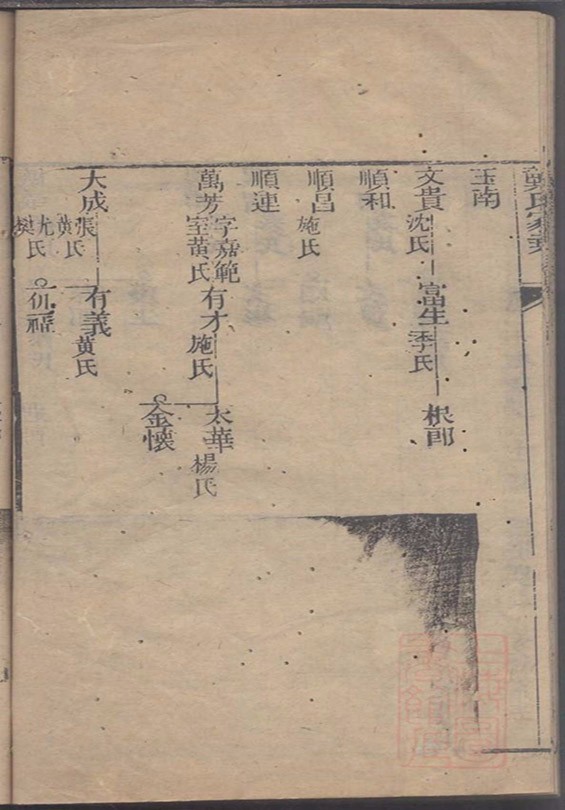 玉南
文貴 沈氏 富生 李氏 根郎
順和
順昌 施氏
順連
萬芳 字嘉範 室黃氏 有才 施氏 太華 楊氏
金懷
大成 張氏 黃氏 尤氏 樊氏 有義 黃氏
仉福